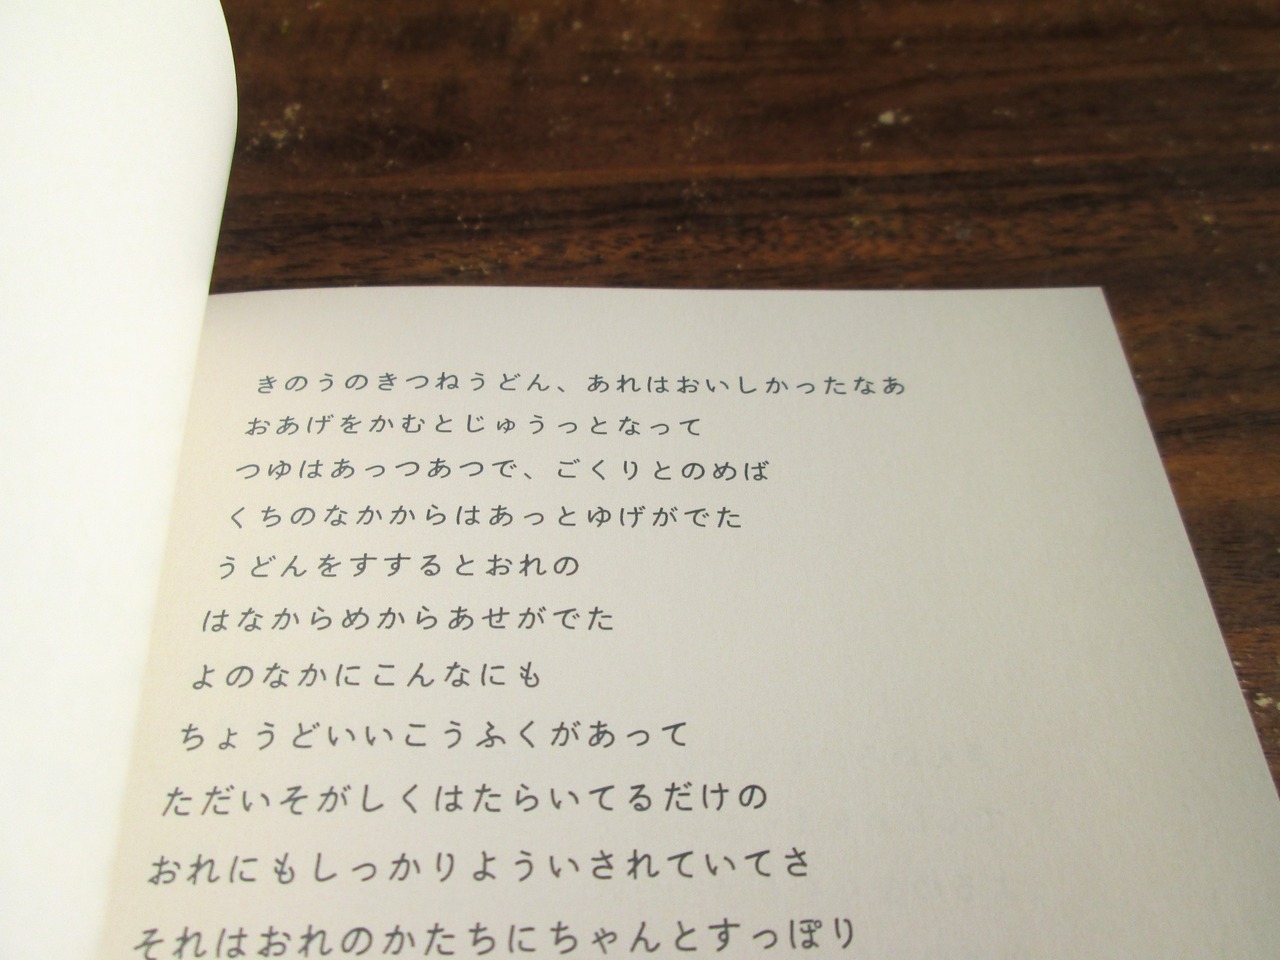 きのうのきつねうどん、あれはおいしかったなあ
おあげをかむとじゅうっとなって
つゆはあっつあつで、ごくりとのめば
くちのなかからはあっとゆげがでた
うどんをすするとおれの
はなからめからあせがでた
よのなかにこんなにも
ちょうどいいこうふくがあって
ただいそがしくはたらいてるだけの
おれにもしっかりよういされていてさ
それはおれのかたちにちゃんとすっぽり